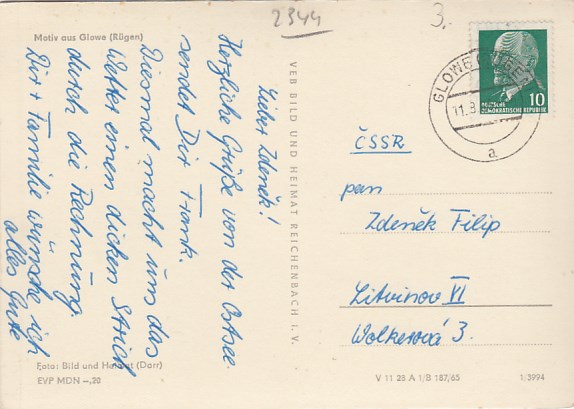 2344
3.-
Motiv aus Glowe (Rügen)
Lieber Zdeněk!
Herzliche Grüße von der Ostsee
sendet Dir Frank.
Diesmal macht uns das
Wetter einen dicken Strich
durch die Rechnung.
Dir + Familie wünsche ich
alles Gute
Foto: Bild und Heimat (Darr)
EVP MDN –,20
VEB BILD UND HEIMAT REICHENBACH I. V.
GLOWE (RÜGEN)
11.8
a
DEUTSCHE
DEMOKRATISCHE REPUBLIK
10
ČSSR
pan
Zdeněk Filip
Litvínov VI
Wolkerová 3.
V 11 28 A 1/B 187/65
1/3994